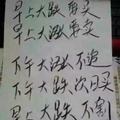 早上大跌要买
早上大涨要卖
下午大涨不追
下午大跌次日买
早上大跌不割